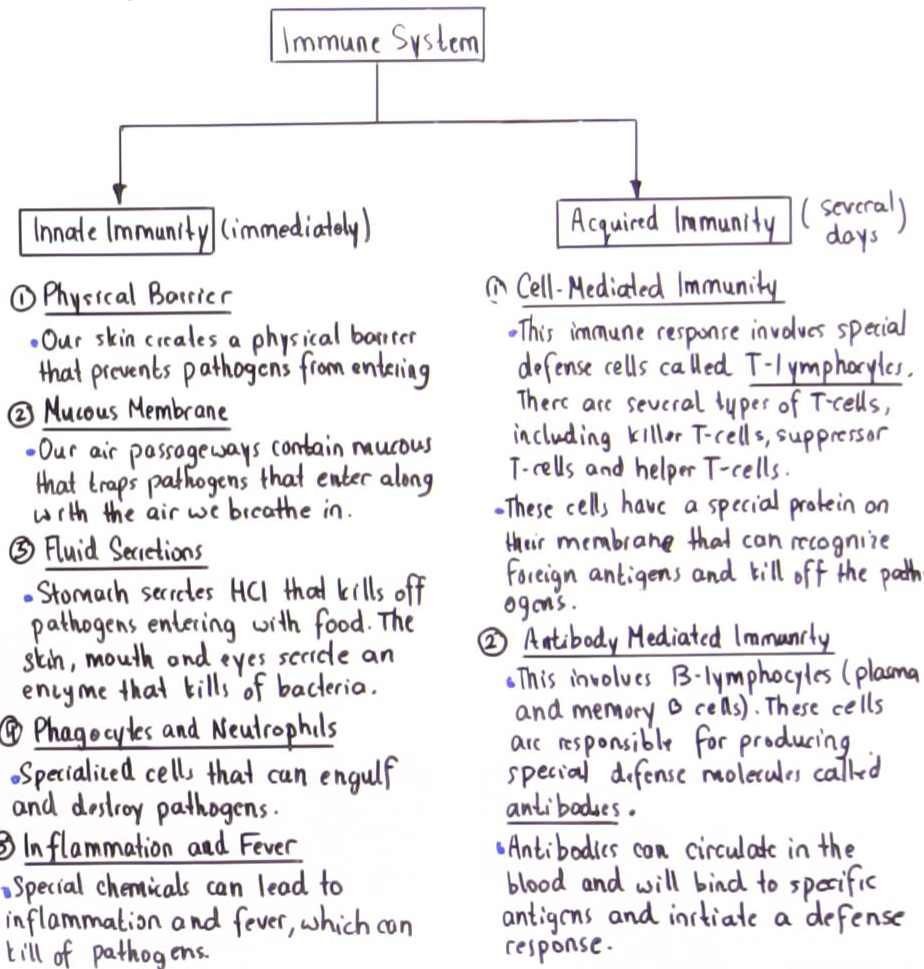 Immune System
Innate Immunity (immediately)
① Physical Barrier
•Our skin creates a physical barrier
that prevents pathogens from entering
② Mucous Membrane
•Our air passageways contain mucous
that traps pathogens that enter along
with the air we breathe in.
③ Fluid Secretions
•Stomach secretes HCl that kills off
pathogens entering with food. The
skin, mouth and eyes secrete an
enzyme that kills of bacteria.
④ Phagocytes and Neutrophils
•Specialized cells that can engulf
and destroy pathogens.
⑤ Inflammation and Fever
•Special chemicals can lead to
inflammation and fever, which can
kill of pathogens.
Acquired Immunity (several
days)
① Cell-Mediated Immunity
•This immune response involves special
defense cells called T-lymphocytes.
There are several types of T-cells,
including killer T-cells, suppressor
T-cells and helper T-cells.
•These cells have a special protein on
their membrane that can recognize
foreign antigens and kill off the path
ogens.
② Antibody Mediated Immunity
•This involves B-lymphocytes (plasma
and memory B cells). These cells
are responsible for producing
special defense molecules called
antibodies.
•Antibodies can circulate in the
blood and will bind to specific
antigens and initiate a defense
response.